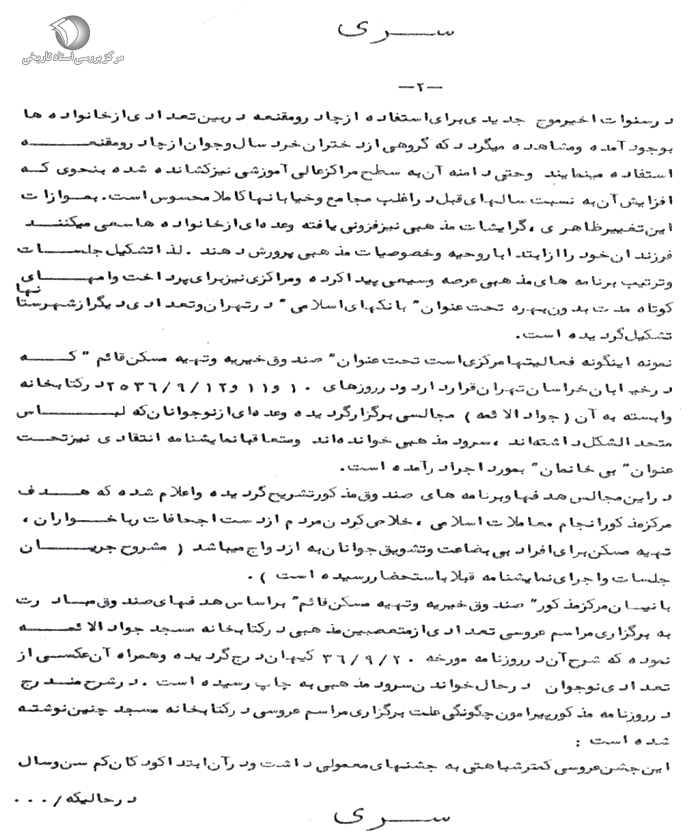 مرکز بررسی اسناد تاریخی
سری
-۲-
در سنوات اخیر موج جدیدی برای استفاده از چادر و مقنعه در بین تعدادی از خانواده ها
بوجود آمده و مشاهده میگردد که گروهی از دختران خردسال و جوان از چادر و مقنعه
استفاده مینمایند و حتی دامنه آن به سطح مراکز عالی آموزشی نیز کشانده شده بنحوی که
افزایش آن به نسبت سالهای قبل در اغلب مجامع و خیابانها کاملا محسوس است. بموازات
این تغییر ظاهری، گرایشات مذهبی نیز فزونی یافته و عده‌ای از خانواده ها سعی میکنند
فرزندان خود را از ابتدا با روحیه و خصوصیات مذهبی پرورش دهند. لذا تشکیل جلسات
و ترتیب برنامه های مذهبی عرصه وسیعی پیدا کرده و مراکزی نیز برای پرداخت وامهای
کوتاه مدت بدون بهره تحت عنوان "بانکهای اسلامی" در تهران و تعدادی دیگر از شهرستانها
تشکیل گردیده است.
نمونه اینگونه فعالیتها مرکزی است تحت عنوان "صندوق خیریه و تهیه مسکن قائم" که
در خیابان خراسان تهران قرار دارد و در روزهای ۱۰ و ۱۱ و ۲۵۳۶/۹/۱۲ در کتابخانه
وابسته به آن (جواد الائمه) مجالسی برگزار گردیده و عده‌ای از نوجوانان که لباس
متحدالشکل داشته‌اند، سرود مذهبی خوانده‌اند و متعاقبا نمایشنامه انتقادی نیز تحت
عنوان "بی خانمان" بمورد اجرا درآمده است.
در این مجالس هدفها و برنامه های صندوق مذکور تشریح گردیده و اعلام شده که هدف
مرکز مذکور انجام معاملات اسلامی، خلاص کردن مردم از دست اجحافات رباخواران،
تهیه مسکن برای افراد بی بضاعت و تشویق جوانان به ازدواج میباشد (مشروح جریان
جلسات و اجرای نمایشنامه قبلا باستحضار رسیده است).
بانیان مرکز مذکور "صندوق خیریه و تهیه مسکن قائم" بر اساس هدفهای صندوق مبادرت
به برگزاری مراسم عروسی تعدادی از متعصبین مذهبی در کتابخانه مسجد جواد الائمه
نموده که شرح آن در روزنامه مورخه ۳۶/۹/۲۰ کیهان درج گردیده و همراه آن عکسی از
تعدادی نوجوان در حال خواندن سرود مذهبی به چاپ رسیده است. در شرح مندرج
در روزنامه مذکور پیرامون چگونگی علت برگزاری مراسم عروسی در کتابخانه مسجد چنین نوشته
شده است:
این جشن عروسی کمتر شباهتی به جشنهای معمولی داشت و در آن ابتدا کودکان کم سن و سال
در حالیکه/...
سری